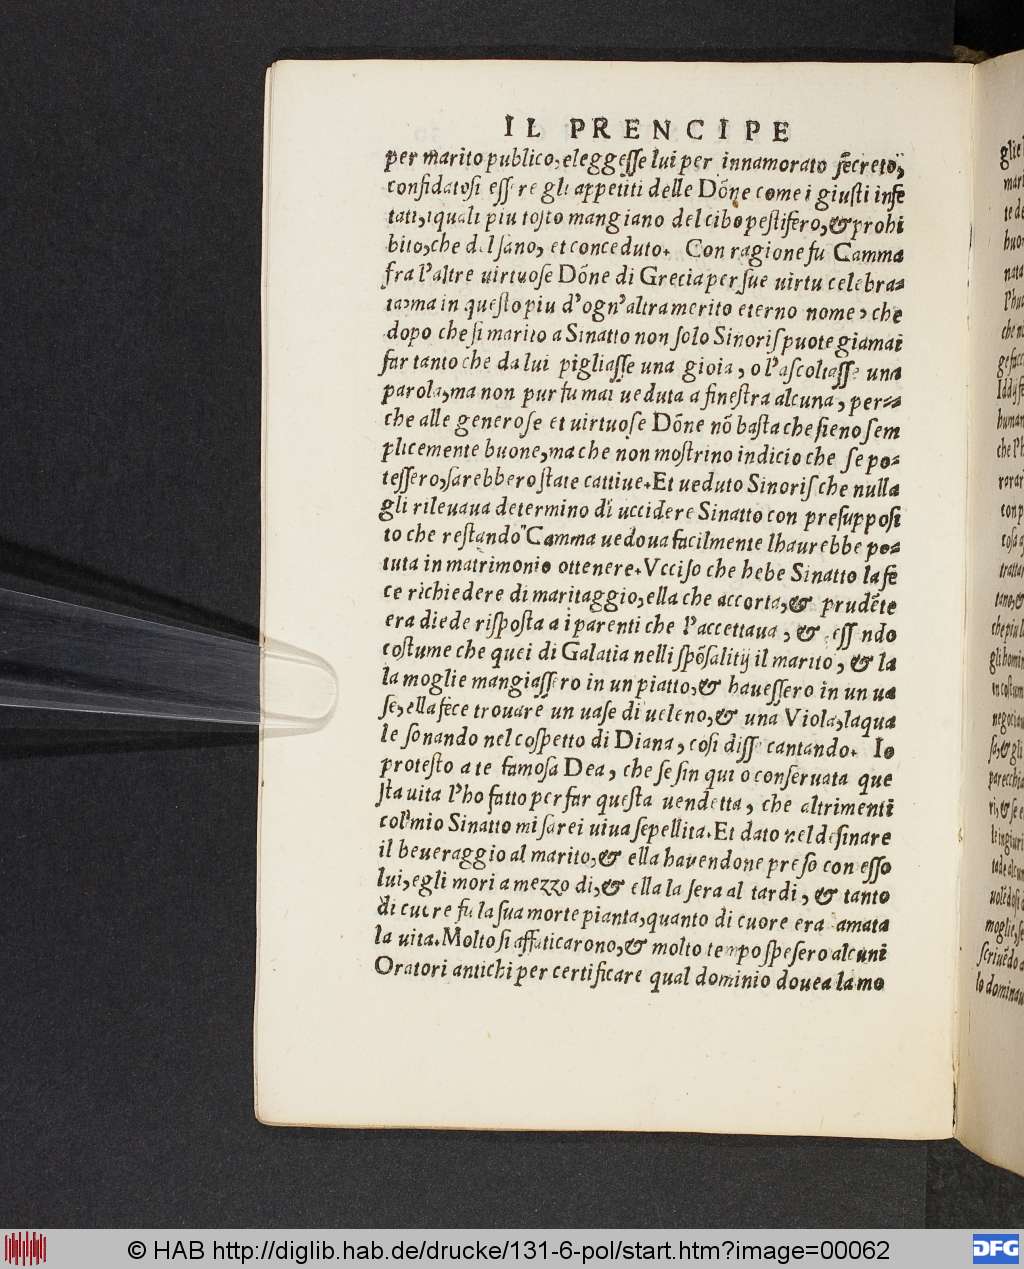 IL PRENCIPE
per marito publico, eleggeſſe lui per innamorato ſecreto,
confidatoſi eſſere gli appetiti delle Dōne come i giuſti infe
tati, iquali piu toſto mangiano del cibo peſtifero, & prohi
bito, che del ſano, et conceduto. Con ragione fu Camma
fra l'altre uirtuoſe Dōne di Grecia per ſue uirtu celebra=
ta, ma in queſto piu d'ogn'altra merito eterno nome, che
dopo che ſi marito a Sinatto non ſolo Sinoriſ puote giamai
far tanto che da lui pigliaſſe una gioia, o l'aſcoltaſſe una
parola, ma non pur fu mai ueduta a fineſtra alcuna, per=
che alle generoſe et uirtuoſe Dōne nō baſta che ſieno ſem
plicemente buone, ma che non moſtrino indicio che ſe po=
teſſero, ſarebbero ſtate cattiue. Et ueduto Sinoriſ che nulla
gli rileuaua determino di uccidere Sinatto con preſuppoſi
to che reſtando Camma uedoua facilmente lhaurebbe po=
tuta in matrimonio ottenere. Vcciſo che hebe Sinatto la fe
ce richiedere di maritaggio, ella che accorta, & prudēte
era diede riſpoſta a i parenti che l'accettaua, & eſſendo
coſtume che quei di Galatia nelli ſpōſalitij il marito, & la
la moglie mangiaſſero in un piatto, & haueſſero in un ua
ſe, ella fece trouare un uaſe di ueleno, & una Viola, laqua
le ſonando nel coſpetto di Diana, coſi diſſe cantando. Io
proteſto a te famoſa Dea, che ſe ſin qui o conſeruata que
ſta uita l'ho fatto per far queſta uendetta, che altrimenti
col mio Sinatto mi ſarei uiua ſepellita. Et dato nel deſinare
il beueraggio al marito, & ella hauendone preſo con eſſo
lui, egli mori a mezzo di, & ella la ſera al tardi, & tanto
di cuore fu la ſua morte pianta, quanto di cuore era amata
la uita. Molto ſi affaticarono, & molto tempo ſpeſero alcuni
Oratori antichi per certificare qual dominio douea la mo
© HAB http://diglib.hab.de/drucke/131-6-pol/start.htm?image=00062
DFG